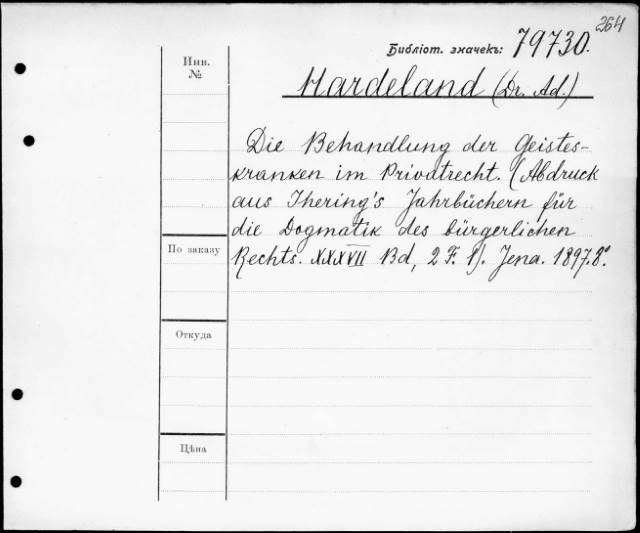 264
Библіот. значекъ: 79730.
Инв.
№
Hardeland (Dr. Ad.)
Die Behandlung der Geistes-
kranken im Privatrecht. (Abdruck
aus Ihering's Jahrbüchern für
die Dogmatik des bürgerlichen
По заказу
Rechts. XXXVII Bd, 2 F. 1). Jena. 1897. 8°
Откуда
Цѣна